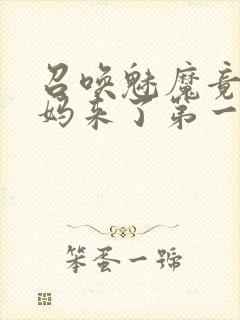 召唤魅魔竟
妈来了第一
笨蛋一號